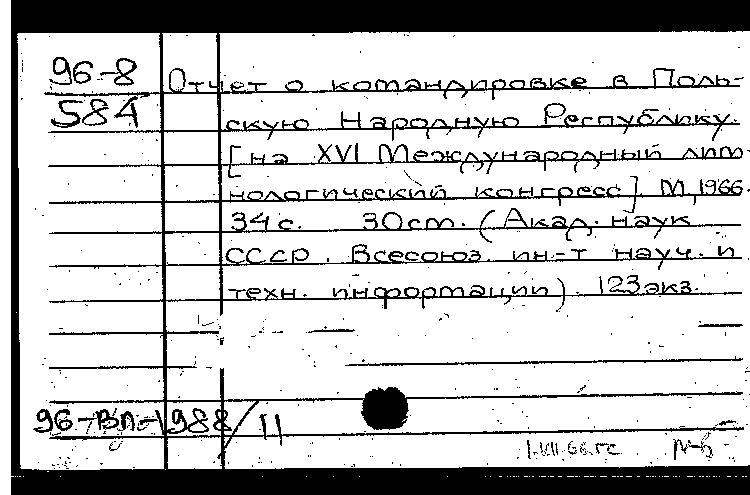 96-8
584
Отчет о командировке в Поль-
скую Народную Республику.
[на XVI Международный лим-
нологический конгресс]. М., 1966.
34 с. 30 см. (Акад. наук
СССР. Всесоюз. ин-т науч. и
техн. информации). 123 экз.
96-ВП-1988/11
1.VII.66.гс